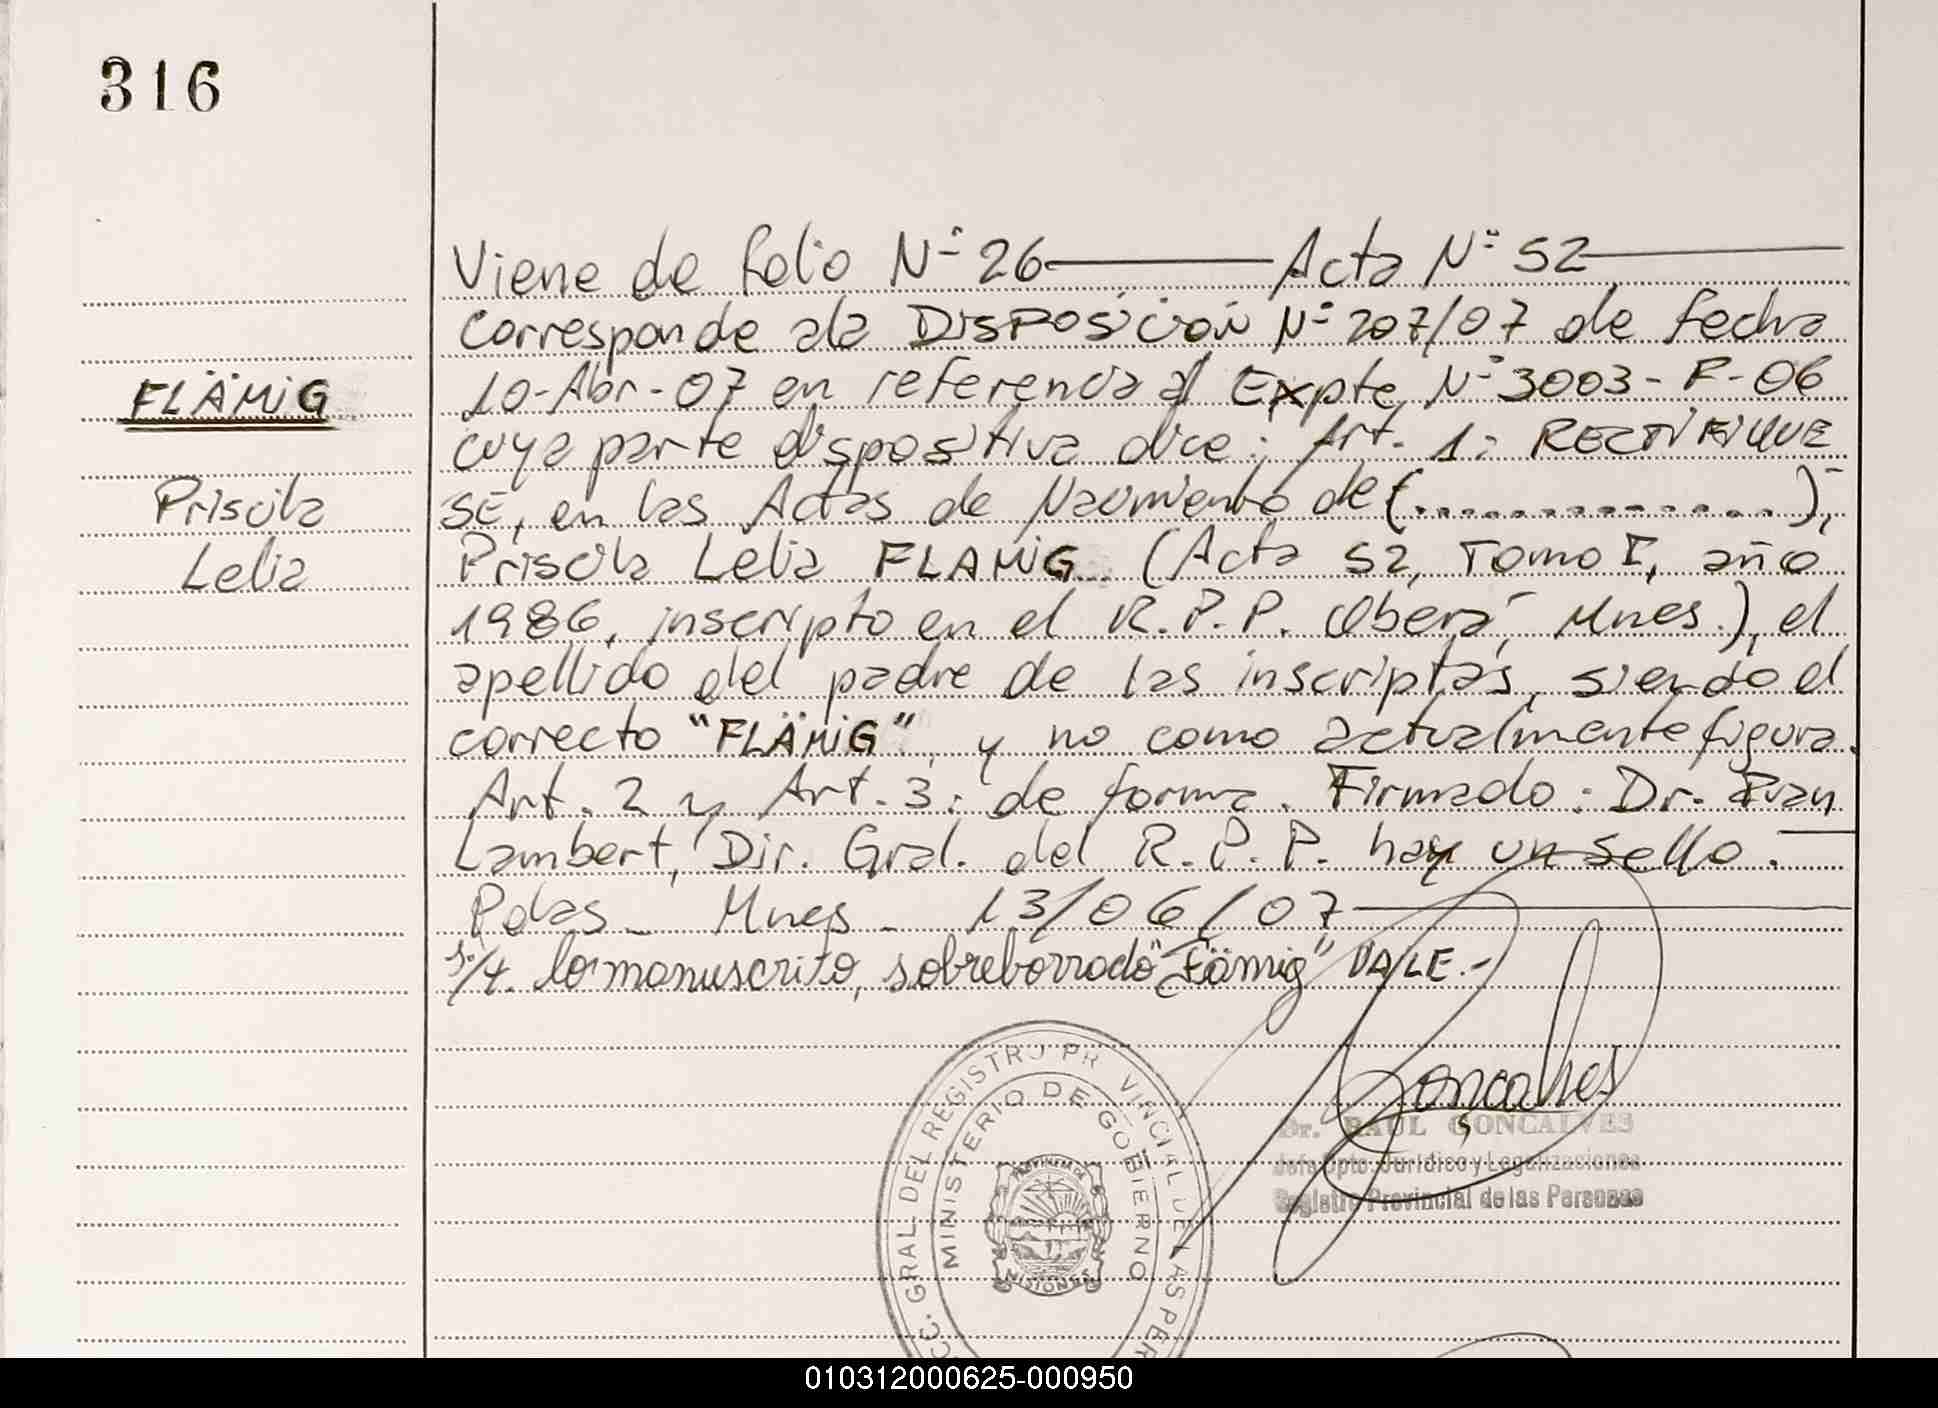 316
FLÄMiG
Priscila
Lelia
Viene de folio Nº 26 Acta Nº 52
Corresponde ala DISPOSiCiON Nº 207/07 de fecha
10-Abr-07 en referencia al Expte Nº 3003-F-06
cuya parte dispositiva dice: Art. 1: RECTiFiQUE
SE, en las Actas de Nacimiento de (..............),
Priscila Lelia FLAMiG (Acta 52, Tomo I, año
1986, inscripto en el R.P.P. Oberá, Mnes.), el
apellido del padre de las inscriptas, siendo el
correcto "FLÄMiG", y no como actualmente figura.
Art. 2 y Art. 3: de forma. Firmado: Dr. Juan
Lambert, Dir. Gral. del R.P.P. hay un sello.
Pdas - Mnes - 13/06/07
lo manuscrito, sobreborrado VALE.-
Goncalves
Dr. RAUL GONCALVES
Jefe Dpto. Jurídico y Legalizaciones
Registro Provincial de las Personas
CC. GRAL DEL REGISTRO PR VINCIAL DE LAS PER
MINISTERIO DE GOBIERNO
PROVINCIA DE
MISIONES
010312000625-000950